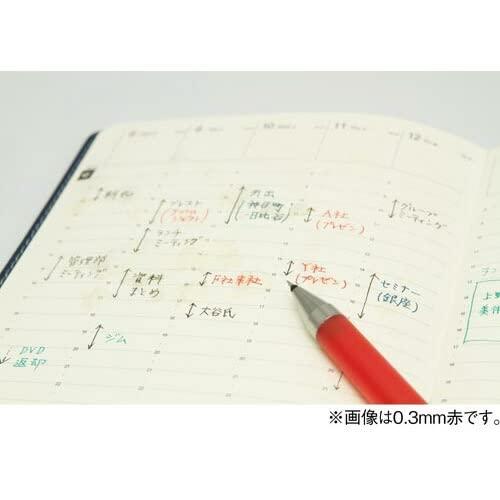 10
11
12
朝礼
外出
(神保町
日比谷)
A社
(プレゼン)
グループ
ミーティング
ランチ
ミーティング
管理部
ミーティング
資料
まとめ
F社来社
Y社
(プレゼン)
セミナー
(銀座)
大谷氏
ジム
DVD
返却
上野
※画像は0.3mm赤です。